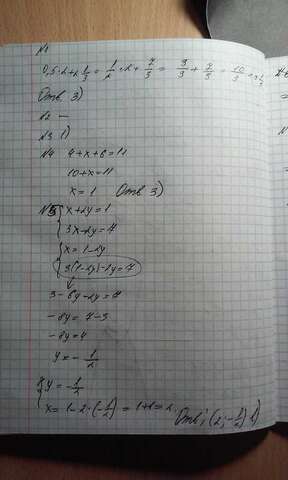 №1
0,5·2+2 1/3 = 1/2·2+ 7/3 = 3/3 + 7/3 = 10/3 = 3 1/3
Отв 3)
№2 —
№3 1)
№4 4+x+6=11
10+x=11
x=1 Отв 3)
№5 { x+2y=1
3x-2y=7
{ x=1-2y
3(1-2y)-2y=7
3-6y-2y=7
-8y=7-3
-8y=4
y=-1/2
{ y=-1/2
x=1-2·(-1/2)=1+1=2. Отв: (2;-1/2) 1)